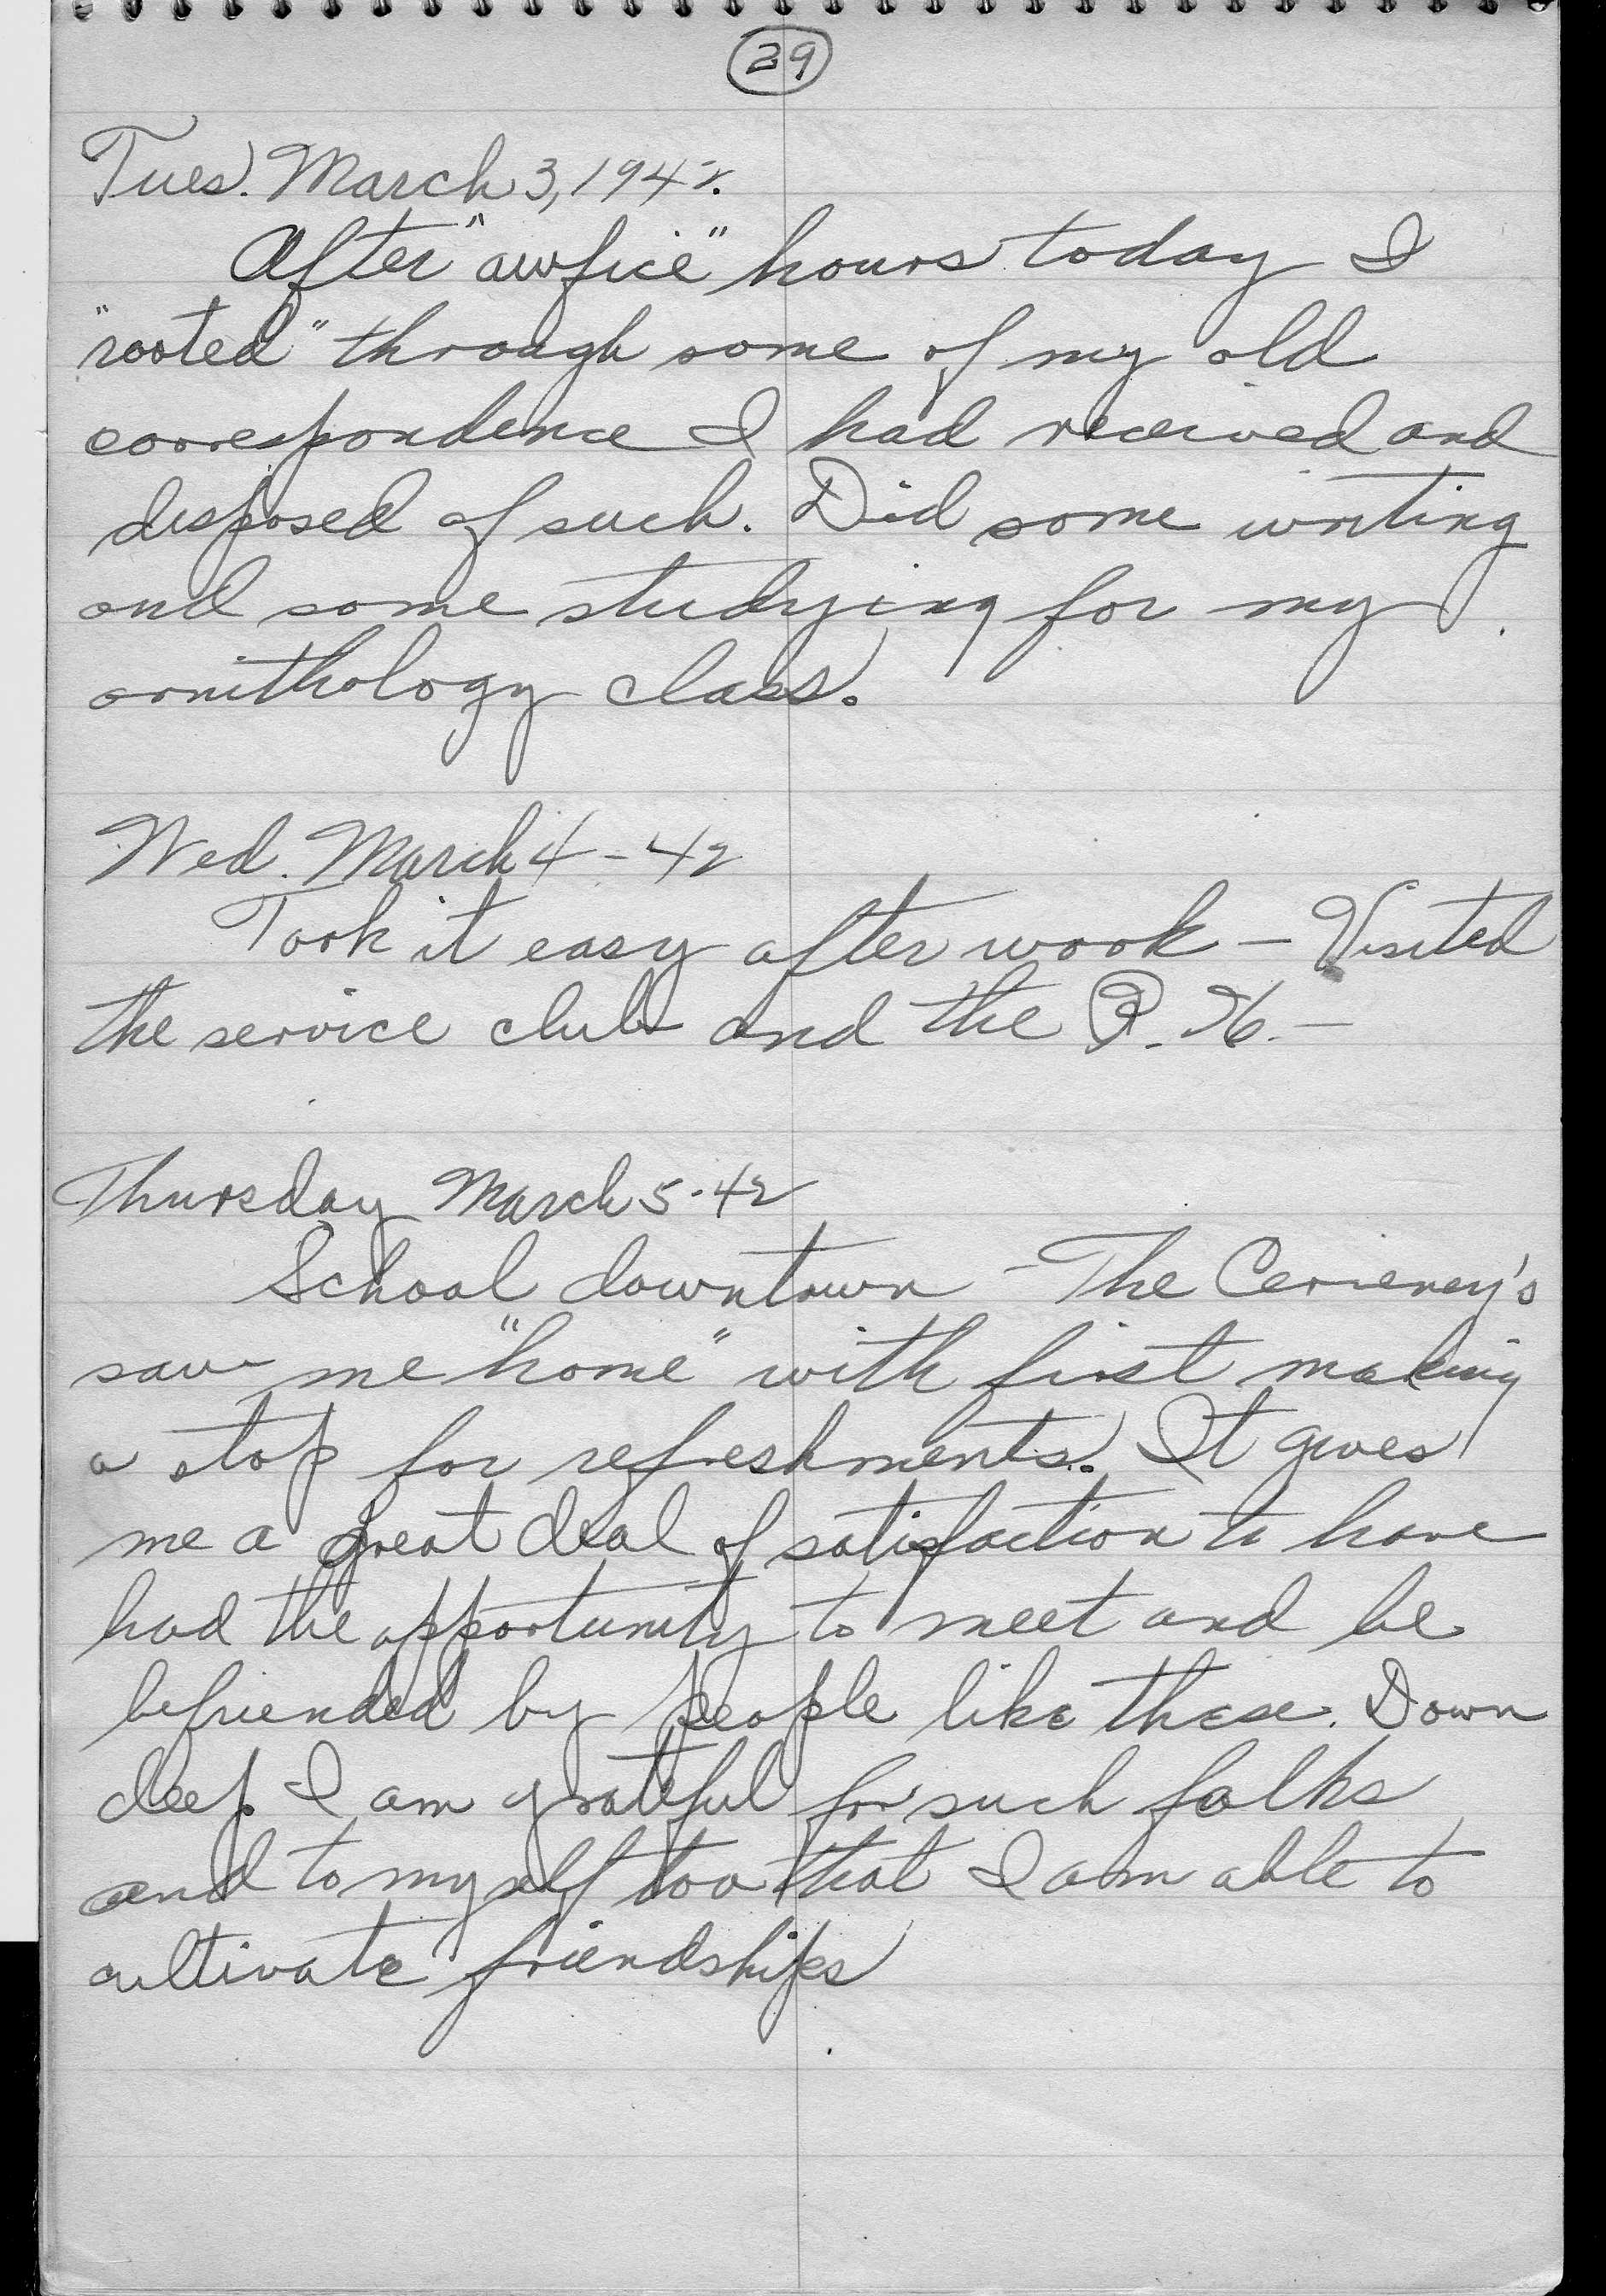 29
Tues. March 3, 1942.
After "awfice" hours today I
"rooted" through some of my old
correspondence I had received and
disposed of such. Did some writing
and some studying for my
ornithology class.
Wed. March 4-42
Took it easy after work - Visited
the service club and the P.X. -
Thursday March 5-42
School downtown - The
saw me "home" with first making
a stop for refreshments. It gives
me a great deal of satisfaction to have
had the opportunity to meet and be
befriended by people like these. Down
deep I am grateful for such folks
and to myself too that I am able to
cultivate friendships